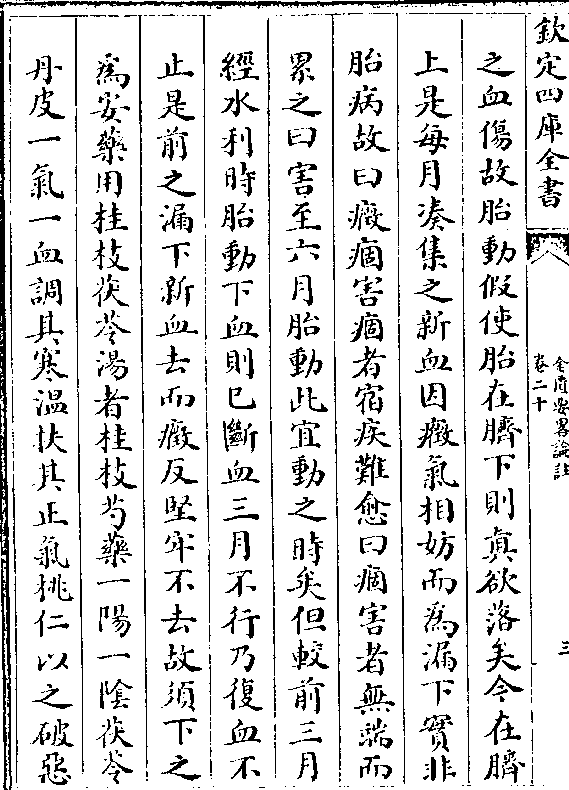 欽定四庫全書
金匱要畧論註
卷二十
三
之血傷故胎動假使胎在臍下則真欲落矣今在臍
上是每月湊集之新血因癥氣相妨而為漏下實非
胎病故曰癥痼害痼者宿疾難愈曰痼害者無端而
累之曰害至六月胎動此宜動之時矣但較前三月
經水利時胎動下血則已斷血三月不行乃復血不
止是前之漏下新血去而癥反堅牢不去故須下之
為安藥用桂枝茯苓湯者桂枝芍藥一陽一陰茯苓
丹皮一氣一血調其寒溫扶其正氣桃仁以之破惡